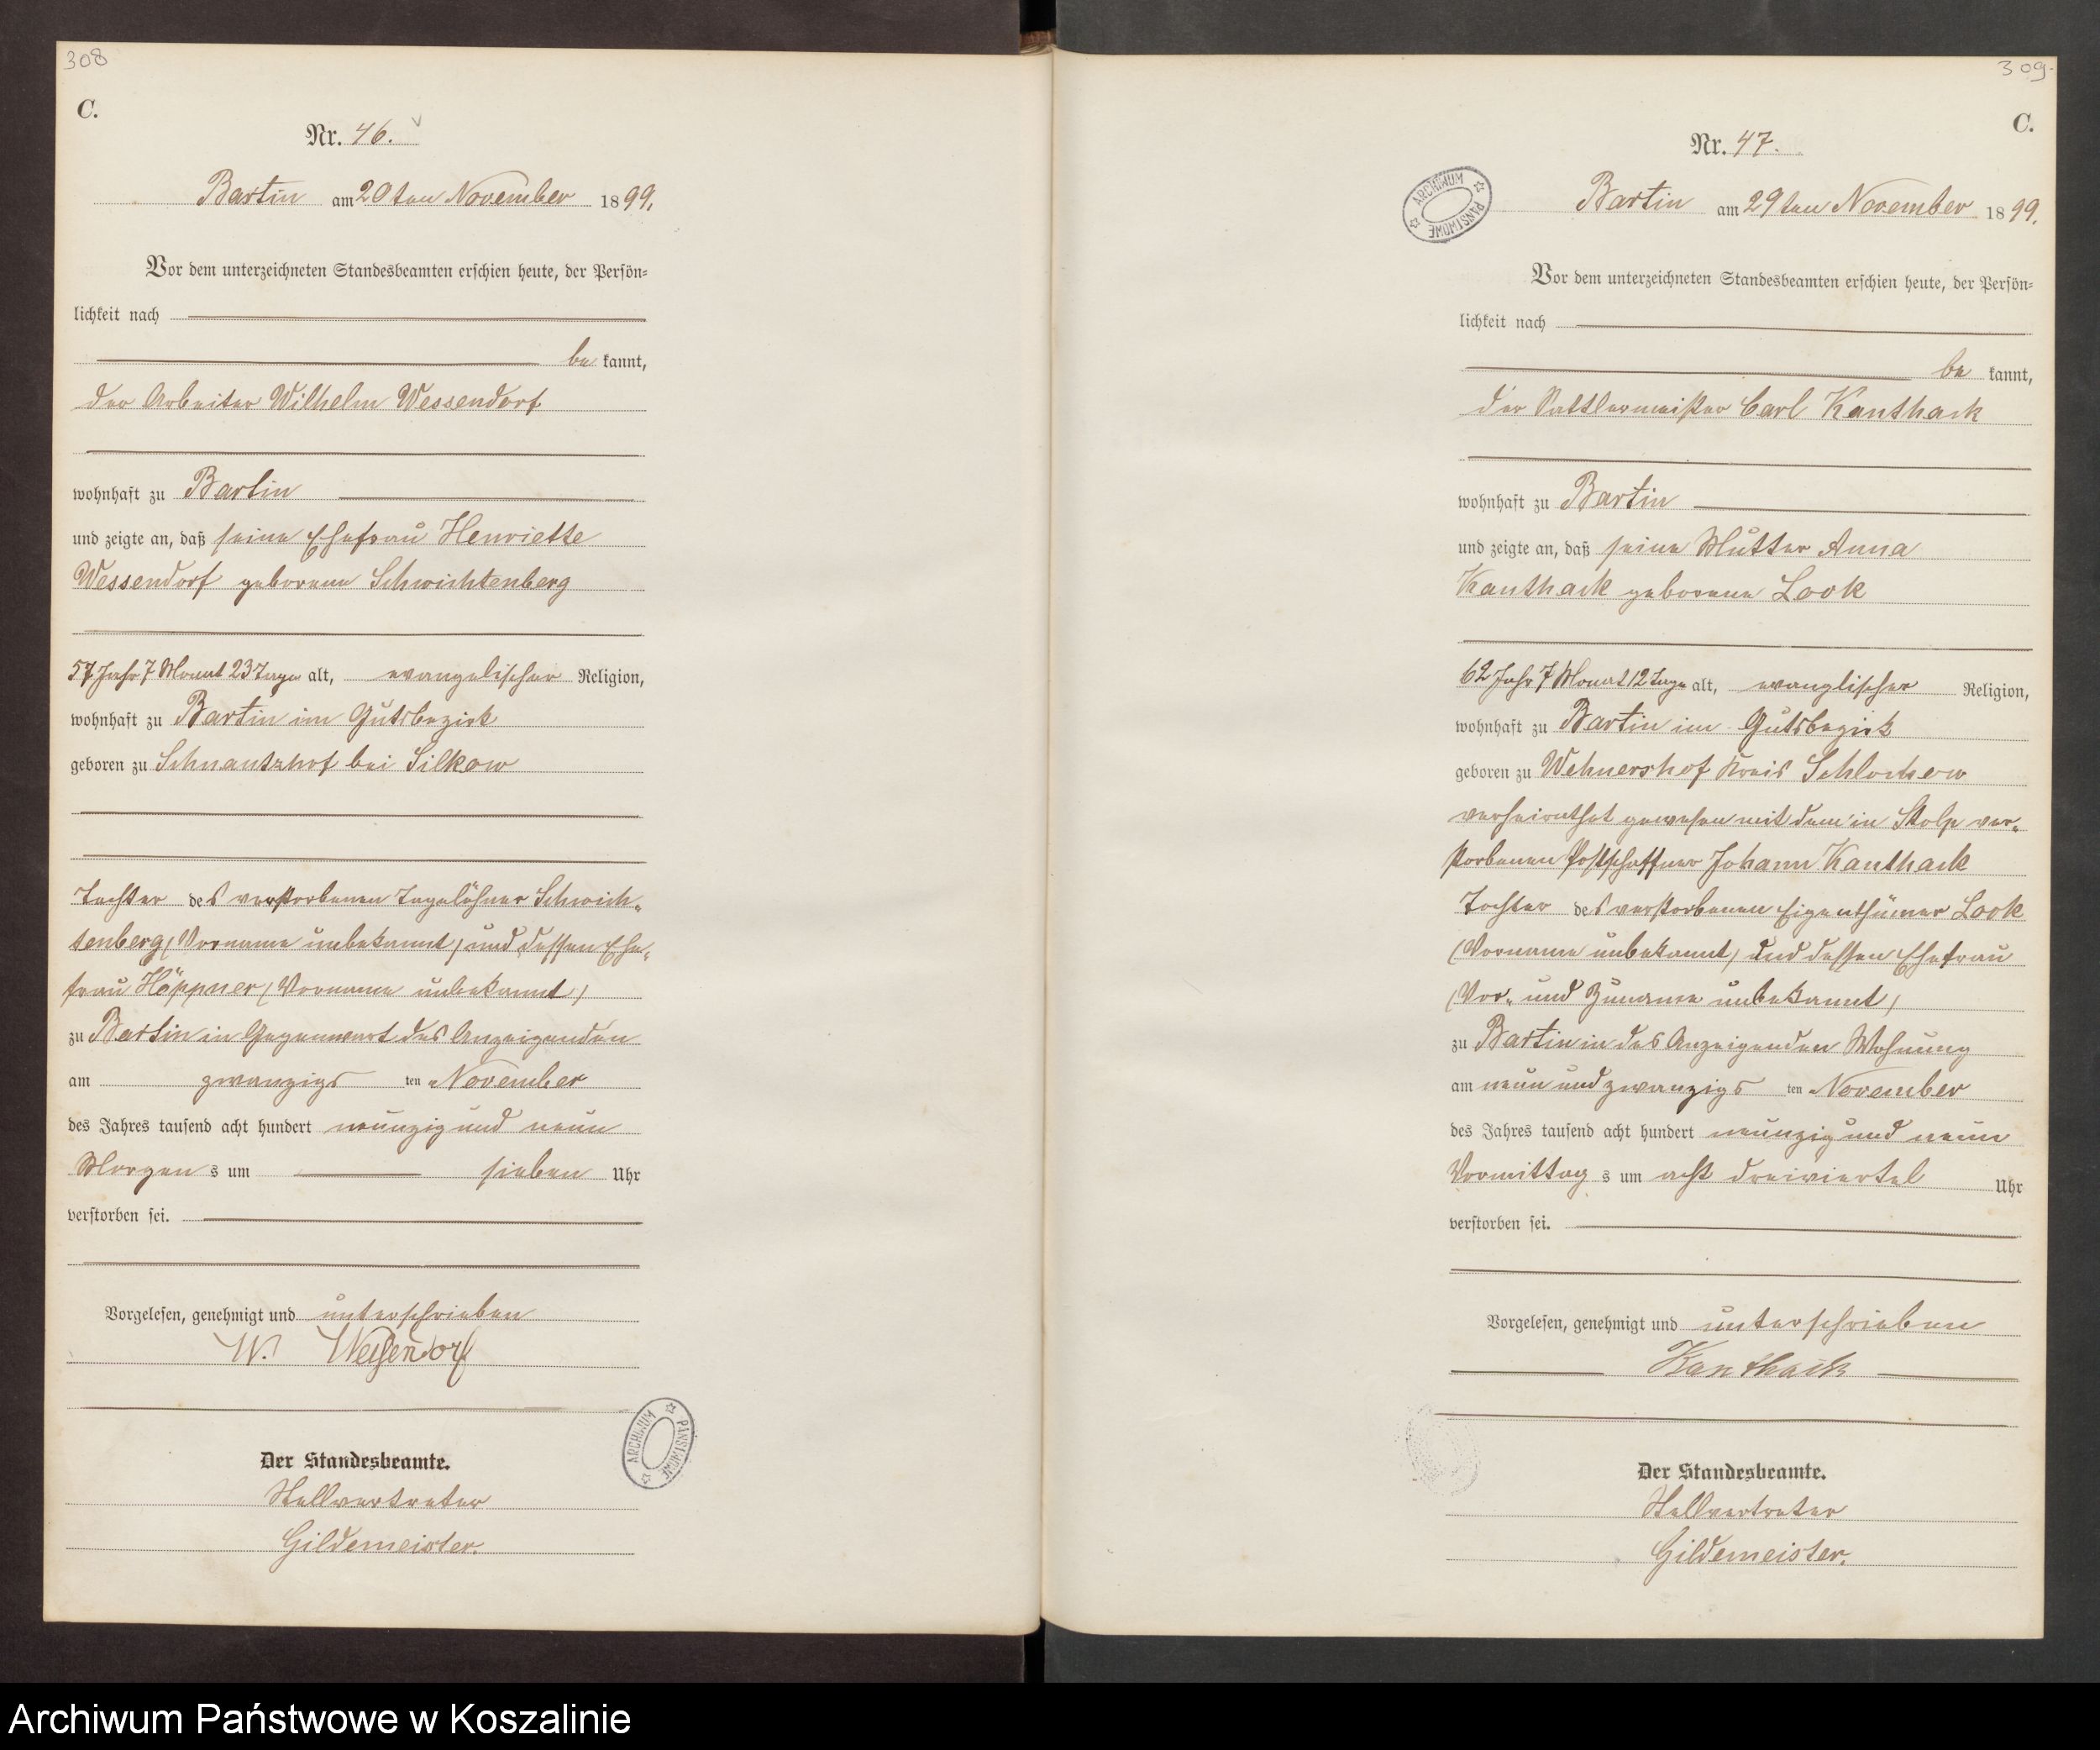 308
C.
Nr. 46.
Bartin am 20ten November 1899.
Vor dem unterzeichneten Standesbeamten erschien heute, der Persön=
lichkeit nach
be kannt,
der Arbeiter Wilhelm Wessendorf
wohnhaft zu Bartin
und zeigte an, daß seine Ehefrau Henriette
Wessendorf geborene Schwichtenberg
57 Jahr 7 Monat 23 Tage alt, evangelischer Religion,
wohnhaft zu Bartin im Gutsbezirk
geboren zu bei Silkow
Tochter des verstorbenen Tagelöhner Schwich=
tenberg (Vorname unbekannt) und dessen Ehe=
frau Höppner (Vorname unbekannt)
zu Bartin in Gegenwart des Anzeigenden
am zwanzigs ten November
des Jahres tausend acht hundert neunzig und neun
Morgen s um sieben Uhr
verstorben sei.
Vorgelesen, genehmigt und unterschrieben
W. Wessendorf
Der Standesbeamte.
Stellvertreter
Gildemeister.
ARCHIWUM PAŃSTWOWE
309.
C.
Nr. 47.
ARCHIWUM PAŃSTWOWE
Bartin am 29ten November 1899.
Vor dem unterzeichneten Standesbeamten erschien heute, der Persön=
lichkeit nach
be kannt,
der Sattlermeister Carl Kanthack
wohnhaft zu Bartin
und zeigte an, daß seine Mutter Anna
Kanthack geborene Look
62 Jahr 7 Monat 12 Tage alt, evanglischer Religion,
wohnhaft zu Bartin im Gutsbezirk
geboren zu Wehnershof Kreis Schlochow
verheirathet gewesen mit dem in Stolp ver=
storbenen Postschaffner Johann Kanthack
Tochter des verstorbenen Eigenthümer Look
(Vorname unbekannt) und dessen Ehefrau
(Vor= und Zuname unbekannt)
zu Bartin in des Anzeigenden Wohnung
am neun und zwanzigs ten November
des Jahres tausend acht hundert neunzig und neun
Vormittag s um acht dreiviertel Uhr
verstorben sei.
Vorgelesen, genehmigt und unterschrieben
Kanthack
Der Standesbeamte.
Stellvertreter
Gildemeister.
Archiwum Państwowe w Koszalinie